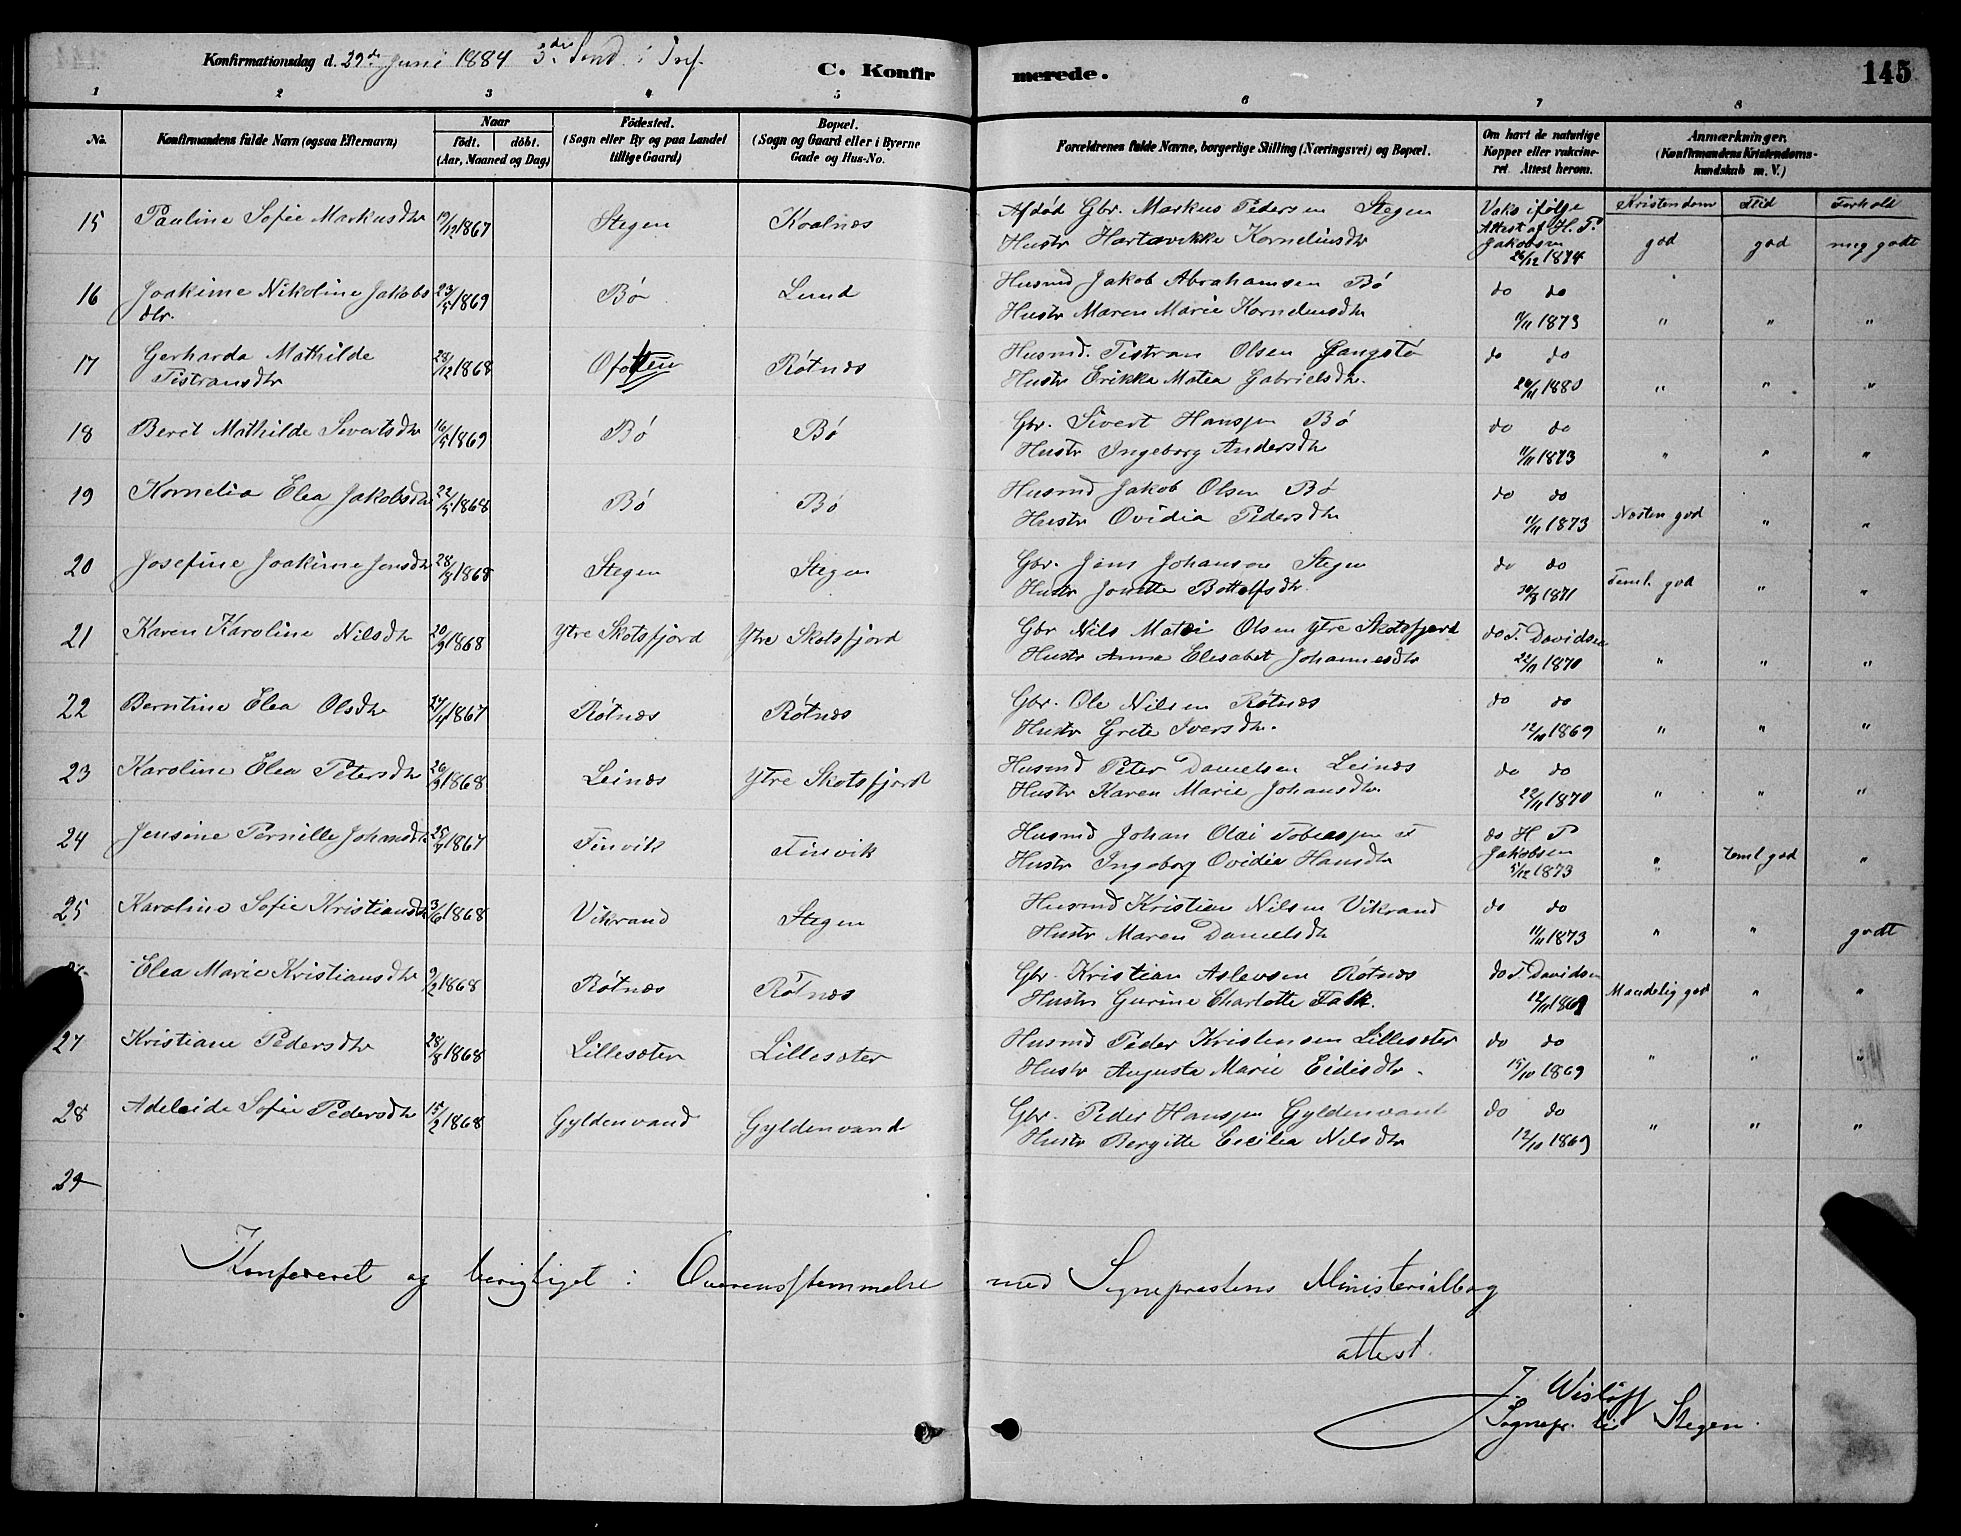 Konfirmationsdag d. 29de Juni 1884 3die Sønd. i Tref.
C. Konfirmerede.
145
1 2 3 4 5 6 7 8
No.
Konfirmandens fulde Navn (ogsaa Efternavn)
Naar
födt. döbt.
(Aar, Maaned og Dag)
Födested.
(Sogn eller By og paa Landet
tillige Gaard)
Bopæl.
(Sogn og Gaard eller i Byerne
Gade og Hus-No.
Forældrenes fulde Navne, borgerlige Stilling (Næringsvei) og Bopæl.
Om havt de naturlige
Kopper eller vakcine-
ret. Attest herom.
Anmærkninger.
(Konfirmandens Kristendoms-
kundskab m. V.)
Kristendom Flid Forhold
15 Pauline Sofie Markusdtr 19/12 1867 Stegen Kvalnæs Afdød Gbr. Markus Pedersen Stegen Vaks ifølge
Attest af H. P.
Hustr Hartavikke Korneliusdtr Jakobsen
26/12 1874 god god meg godt
16 Joakime Nikoline Jakobs 23/5 1869 Bø Lund Husmd Jakob Abrahamsen Bø do do
dtr. Hustr Maren Marie Korneliusdtr 11/11 1873 " " "
17 Gerharda Mathilde 28/12 1868 Ofoten Røtnæs Husmd. Tistran Olsen Gangstø do do
Tistransdtr Hustr Erikka Matea Gabrielsdtr. 20/11 1880 " " "
18 Beret Mathilde Sivertsdtr 16/5 1869 Bø Bø Gbr. Sivert Hanssen Bø do do
Hustr Ingeborg Andersdtr 11/11 1873 " " "
19 Kornelia Elea Jakobsdtr 22/5 1868 Bø Bø Husmd Jakob Olsen Bø do do
Hustr Ovidia Pedersdtr 11/11 1873 Næsten god " "
20 Josefine Joakime Jensdtr 28/8 1868 Stegen Stegen Gbr. Jens Johansen Stegen do do
Hustr Jonette Bottolfsdtr. 30/8 1871 Teml. god " "
21 Karen Karoline Nilsdtr 20/9 1868 Ytre Skotsfjord Ytre Skotsfjord Gbr Nils Matei Olsen Ytre Skotsfjord do T. Davidsen
Hustr Anna Elisabet Johannesdtr 22/11 1870 " " "
22 Berntine Elea Olsdtr 27/4 1867 Røtnæs Røtnæs Gbr. Ole Nilsen Røtnæs do do
Hustr Grete Iversdtr. 12/10 1869 " " "
23 Karoline Elea Petersdtr 26/9 1868 Leinæs Ytre Skotsfjord Husmd Peter Danielsen Leinæs do do
Hustr Karen Marie Johansdtr 22/11 1870 " " "
24 Jensine Pernille Johansdtr 25/7 1867 Finvik Finvik Husmd Johan Olai Tobiassen F do H P
Jakobsen
Hustr Ingeborg Ovidia Hansdtr 5/12 1873 " teml god "
25 Karoline Sofie Kristiansdtr 3/6 1868 Vikrand Stegen Husmd Kristian Nilsen Vikrand do do
Hustr Maren Danielsdtr 11/11 1873 " " godt
Elea Marie Kristiansdtr 9/2 1868 Røtnæs Røtnæs Gbr. Kristian Aslevsen Røtnæs do T. Davidsen
Hustr Gurine Charlotte Falk. 12/10 1869 Maadelig god " "
27 Kristiane Pedersdtr 28/8 1868 Lillesæter Lillesæter Husmd Peder Kristensen Lillesæter do do
Hustr Augusta Marie Eidisdtr. 15/10 1869 " " "
28 Adeleide Sofie Pedersdtr 15/2 1868 Gyldenvand Gyldenvand Gbr. Peder Hanssen Gyldenvand do do
Hustr Bergitte Cecilia Nilsdtr 12/10 1869 " " "
29
Konfereret og berigtiget i Overensstemmelse med Sogneprestens Ministerialbog
attest.
J. Wisløff
Sognepr. til Stegen.